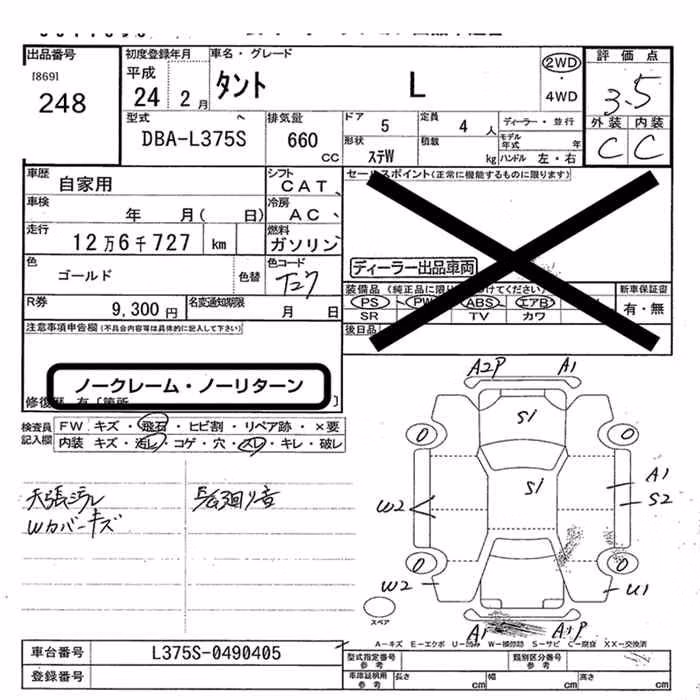 出品番号
[869]
248
初度登録年月
平成
24 2 月
車名・グレード
タント L
2WD
・
4WD
評価点
3.5
外装 内装
C C
型式
DBA-L375S
排気量
660
CC
ドア
5
定員
4 人
ディーラー・並行
モデル年式 年
形状
ステW
積載
kg
ハンドル 左・右
車歴
自家用
シフト
CAT
車検
年 月( 日)
冷房
AC
走行
12万6千727 km
燃料
ガソリン
色
ゴールド
色替
色コード
T27
R券
9,300 円
名変通知期限
月 日
セールスポイント(正常に機能するものに限ります)
ディーラー出品車両
PS PW ABS エアB
SR TV カワ
後日品
新車保証書
有・無
注意事項申告欄(不具合内容等は具体的に記入して下さい)
ノークレーム・ノーリターン
検査員
記入欄
FW キズ・飛石・ヒビ割・リペア跡・×要
内装 キズ・汚レ・コゲ・穴・スレ・キレ・破レ
天張汚レ
Wカバーキズ
A2P A1
S1
S1
A1
S2
W2
W2
U1
A1
スペア
A―キズ E―エクボ U―凹み W―補修跡 S―サビ C―腐食 XX―交換済
車台番号 L375S-0490405
登録番号
型式指定番号
参考
類別区分番号
参考
車庫証明用
参考
長さ cm 幅 cm 高さ cm